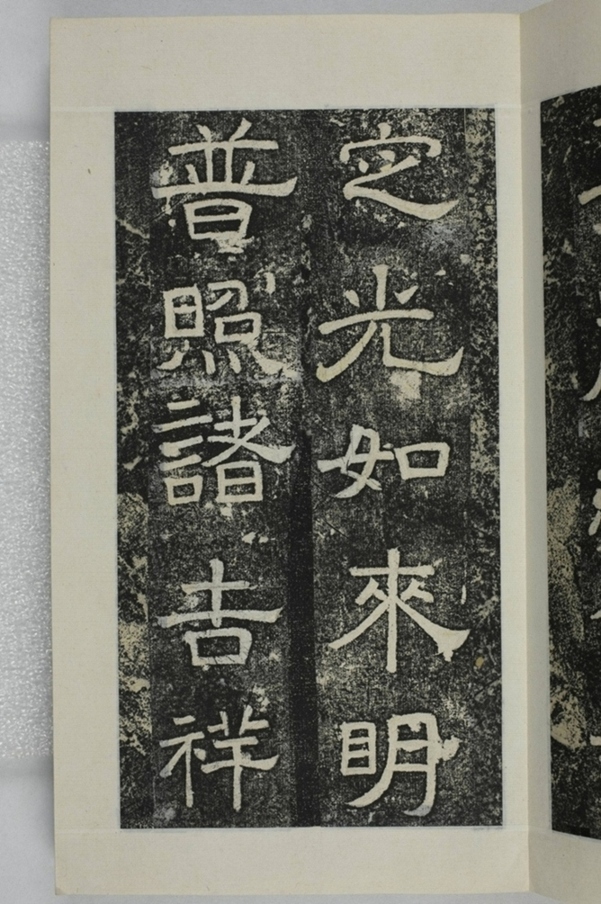 定光如來明
普照諸吉祥